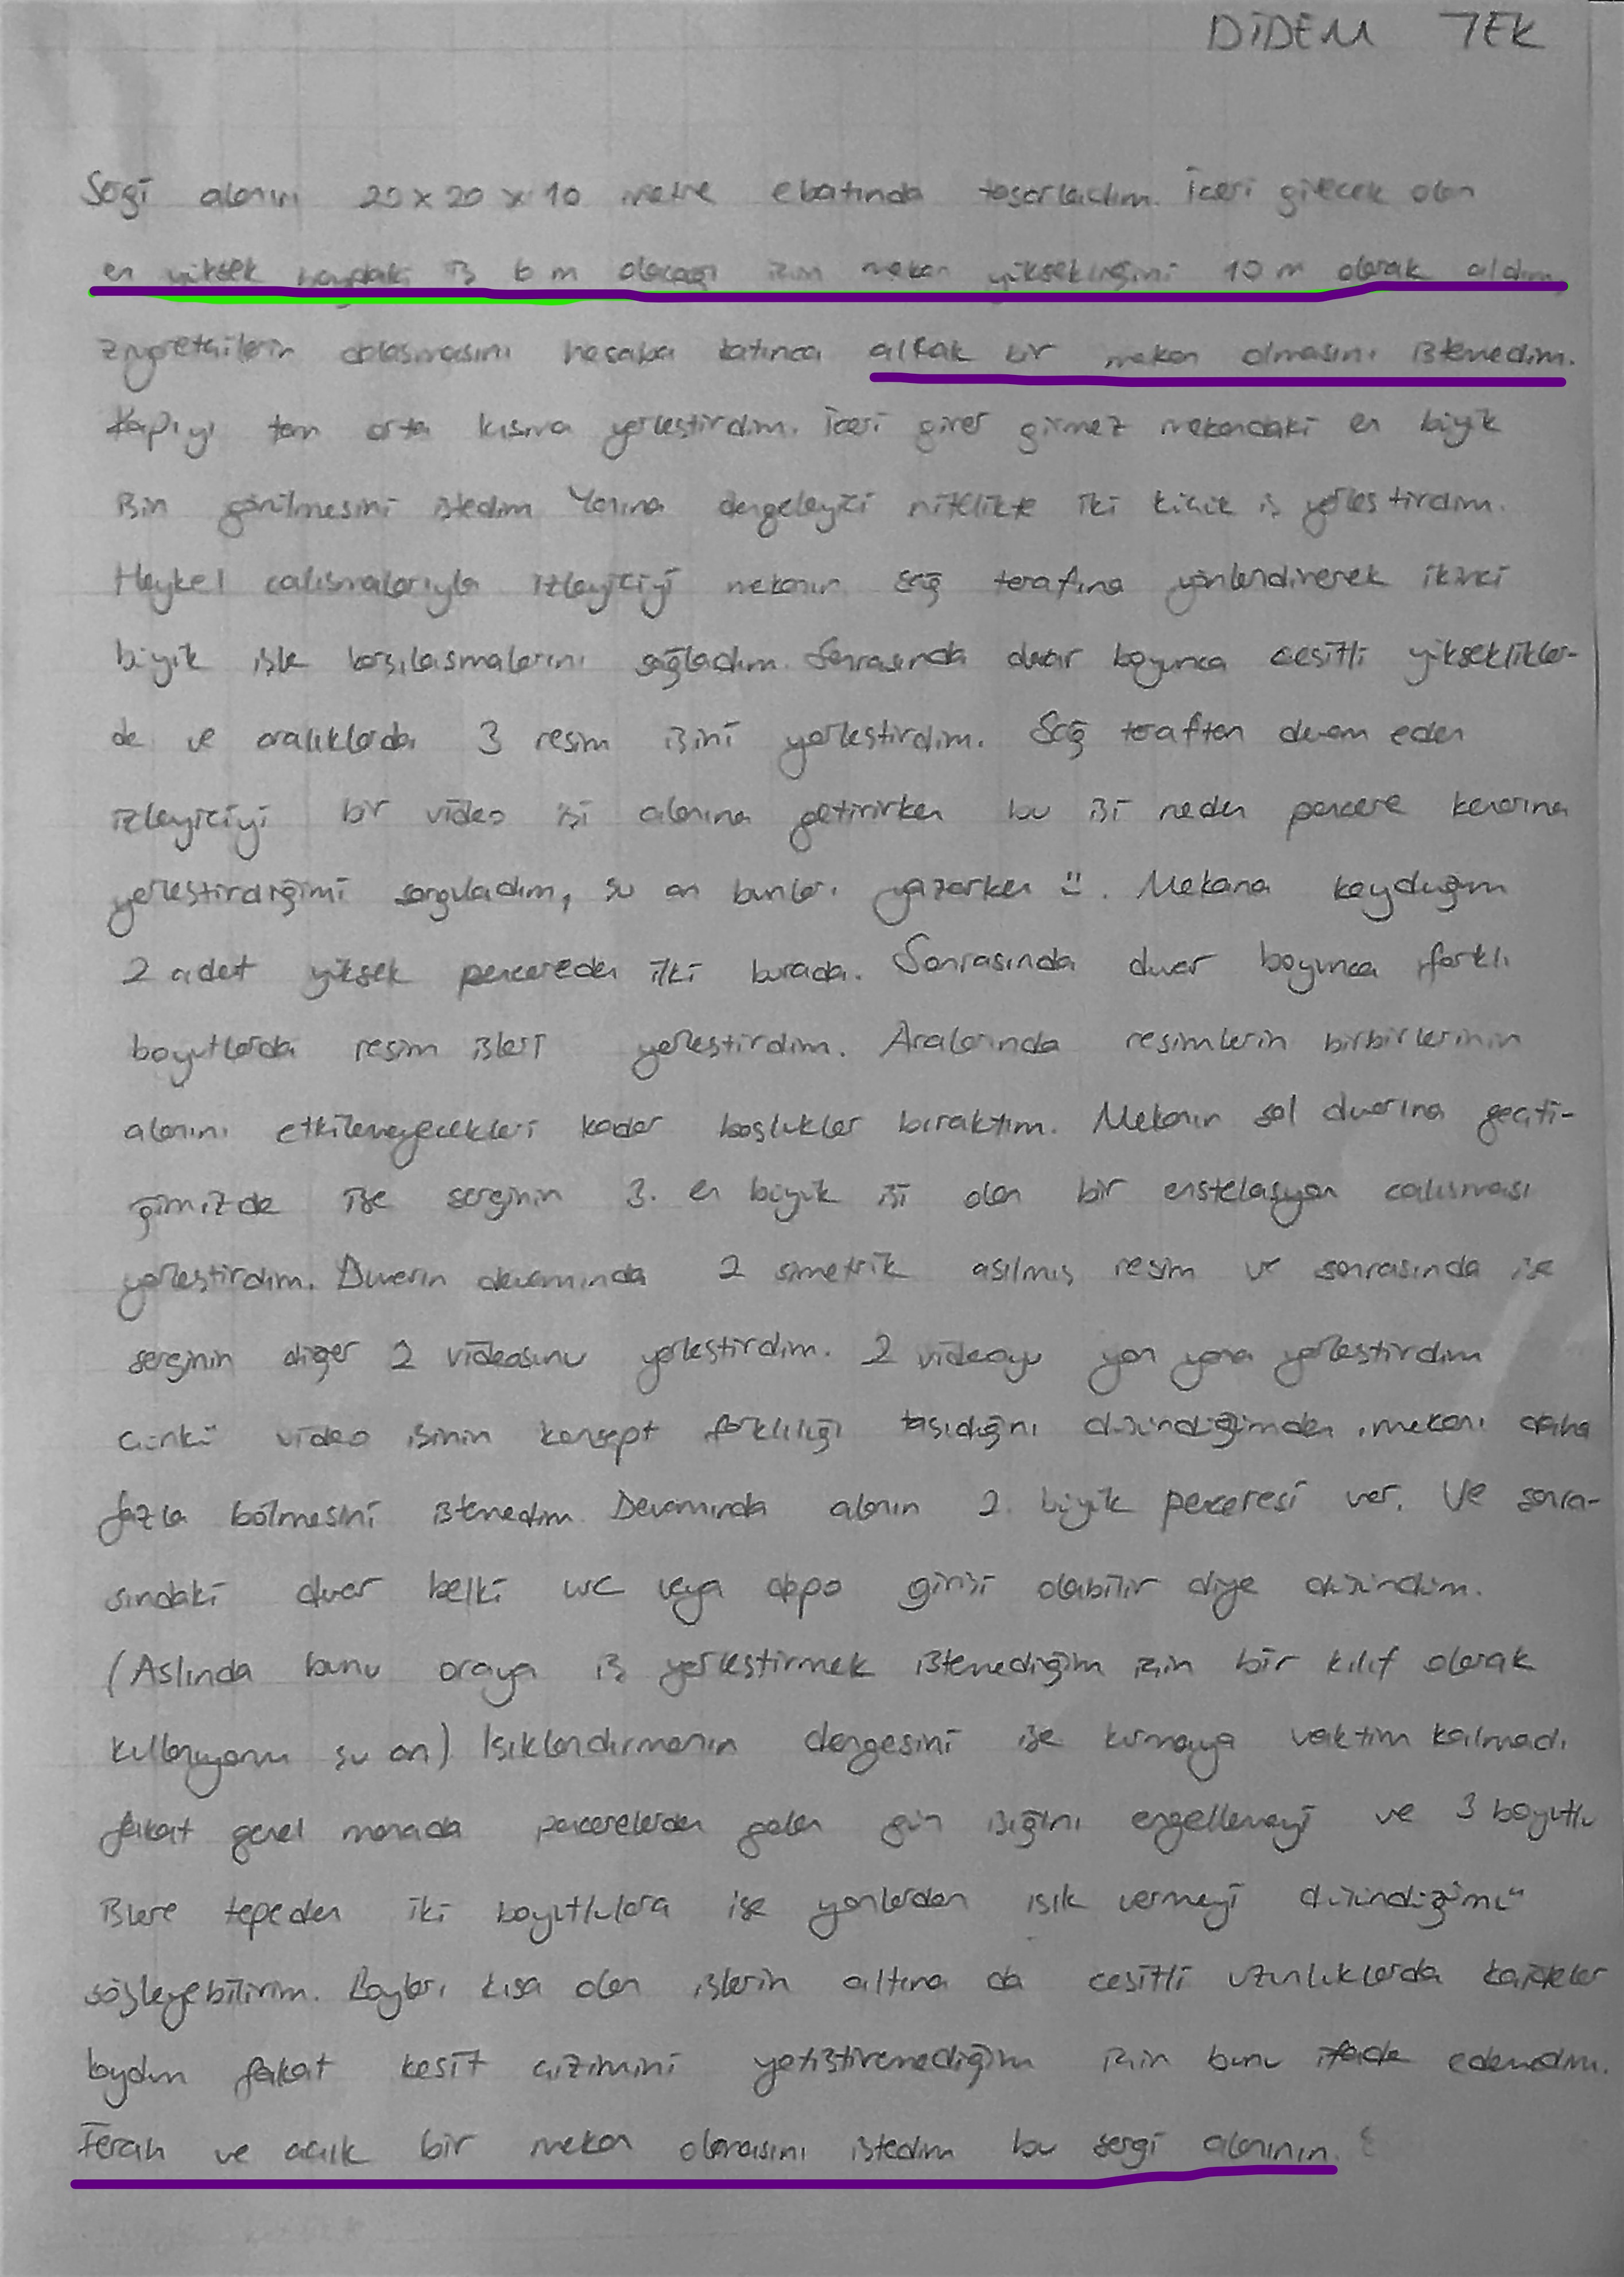 DİDEM TEK
Sergi alanını 20 x 20 x 10 metre ebatında tasarladım. İçeri girecek olan
en yüksek boydaki iş 6 m olacağı için mekan yüksekliğini 10 m olarak aldım,
ziyaretçilerin dolaşmasını hesaba katınca alçak bir mekan olmasını istemedim.
Kapıyı tam orta kısma yerleştirdim. İçeri girer girmez mekandaki en büyük
işin görülmesini istedim Yanına dengeleyici nitelikte iki küçük iş yerleştirdim.
Heykel çalışmalarıyla izleyiciyi mekanın sağ tarafına yönlendirerek ikinci
büyük işle karşılaşmalarını sağladım. Sonrasında duvar boyunca çeşitli yükseklikler-
de ve aralıklarda 3 resim işini yerleştirdim. Sağ taraftan devam eden
izleyiciyi bir video işi alanına getirirken bu işi neden pencere kenarına
yerleştirdiğimi sorguladım, şu an bunları yazarken :). Mekana koyduğum
2 adet yüksek pencereden ilki burada. Sonrasında duvar boyunca farklı
boyutlarda resim işleri yerleştirdim. Aralarında resimlerin birbirlerinin
alanını etkilemeyecekleri kadar boşluklar bıraktım. Mekanın sol duvarına geçti-
ğimizde ise serginin 3. en büyük işi olan bir enstelasyon çalışması
yerleştirdim. Duvarın devamında 2 simetrik asılmış resim ve sonrasında ise
serginin diğer 2 videosunu yerleştirdim. 2 videoyu yan yana yerleştirdim
çünkü video işinin konsept farklılığı taşıdığını düşündüğümden, mekanı daha
fazla bölmesini istemedim. Devamında alanın 2. büyük penceresi var. Ve sonra-
sındaki duvar belki wc veya depo girişi olabilir diye düşündüm.
(Aslında bunu oraya iş yerleştirmek istemediğim için bir kılıf olarak
kullanıyorum şu an) Işıklandırmanın dengesini ise kurmaya vaktim kalmadı
fakat genel manada pencerelerden gelen gün ışığını engellemeyi ve 3 boyutlu
işlere tepeden iki boyutlulara ise yanlardan ışık vermeyi düşündüğümü
söyleyebilirim. Boyları kısa olan işlerin altına da çeşitli uzunluklarda kaideler
koydum fakat kesit çizimini yetiştiremediğim için bunu ifade edemedim.
Ferah ve açık bir mekan olmasını istedim bu sergi alanının.